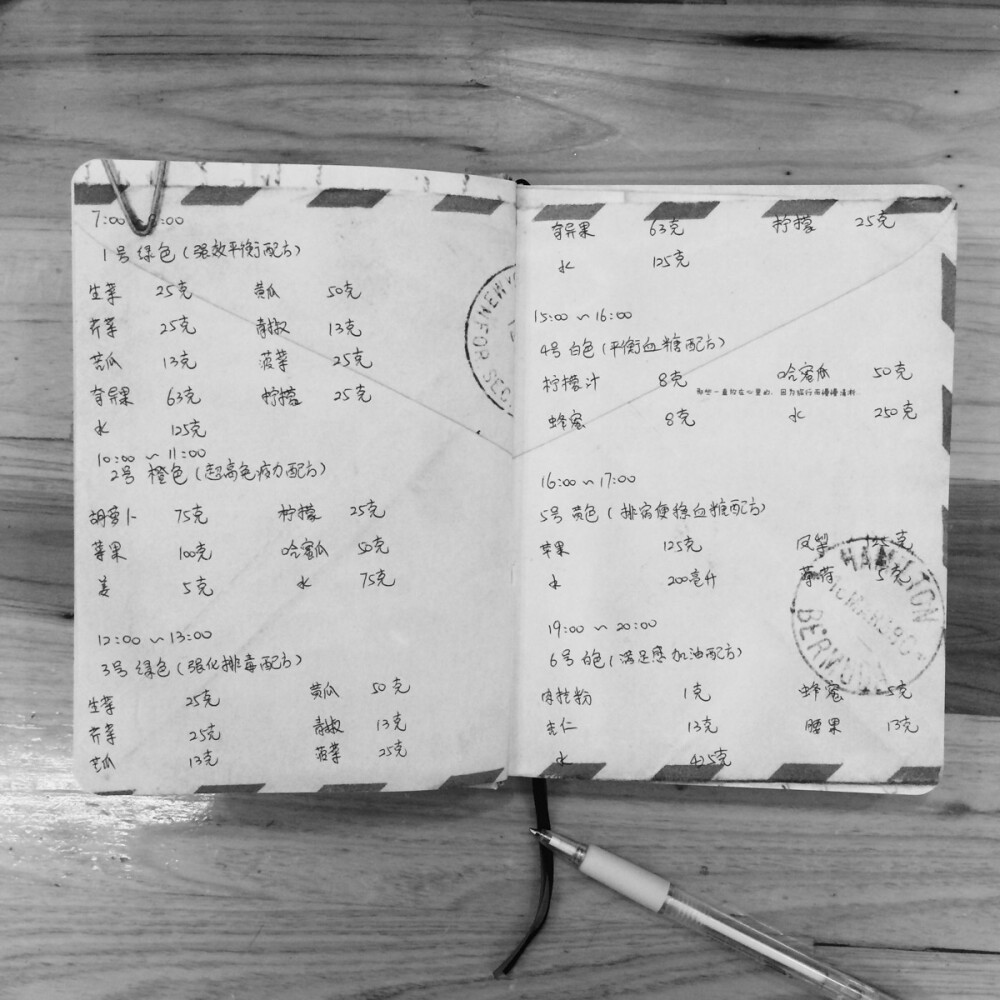 7:00 ~ 8:00
1号 绿色 (强效平衡配方)
生菜 25克 黄瓜 50克
芹菜 25克 青椒 13克
苦瓜 13克 菠菜 25克
奇异果 63克 柠檬 25克
水 125克
10:00 ~ 11:00
2号 橙色 (超高免疫力配方)
胡萝卜 75克 柠檬 25克
苹果 100克 哈蜜瓜 50克
姜 5克 水 75克
12:00 ~ 13:00
3号 绿色 (强化排毒配方)
生菜 25克 黄瓜 50克
芹菜 25克 青椒 13克
苦瓜 13克 菠菜 25克
奇异果 63克 柠檬 25克
水 125克
15:00 ~ 16:00
4号 白色 (平衡血糖配方)
柠檬汁 8克 哈蜜瓜 50克
蜂蜜 8克 水 250克
16:00 ~ 17:00
5号 黄色 (排宿便稳血糖配方)
苹果 125克 凤梨 克
水 200毫升 薄荷 5克
19:00 ~ 20:00
6号 白色 (满足感加油配方)
肉桂粉 1克 蜂蜜 5克
杏仁 13克 腰果 13克
水 425克
HAMILTON
BERMUDA